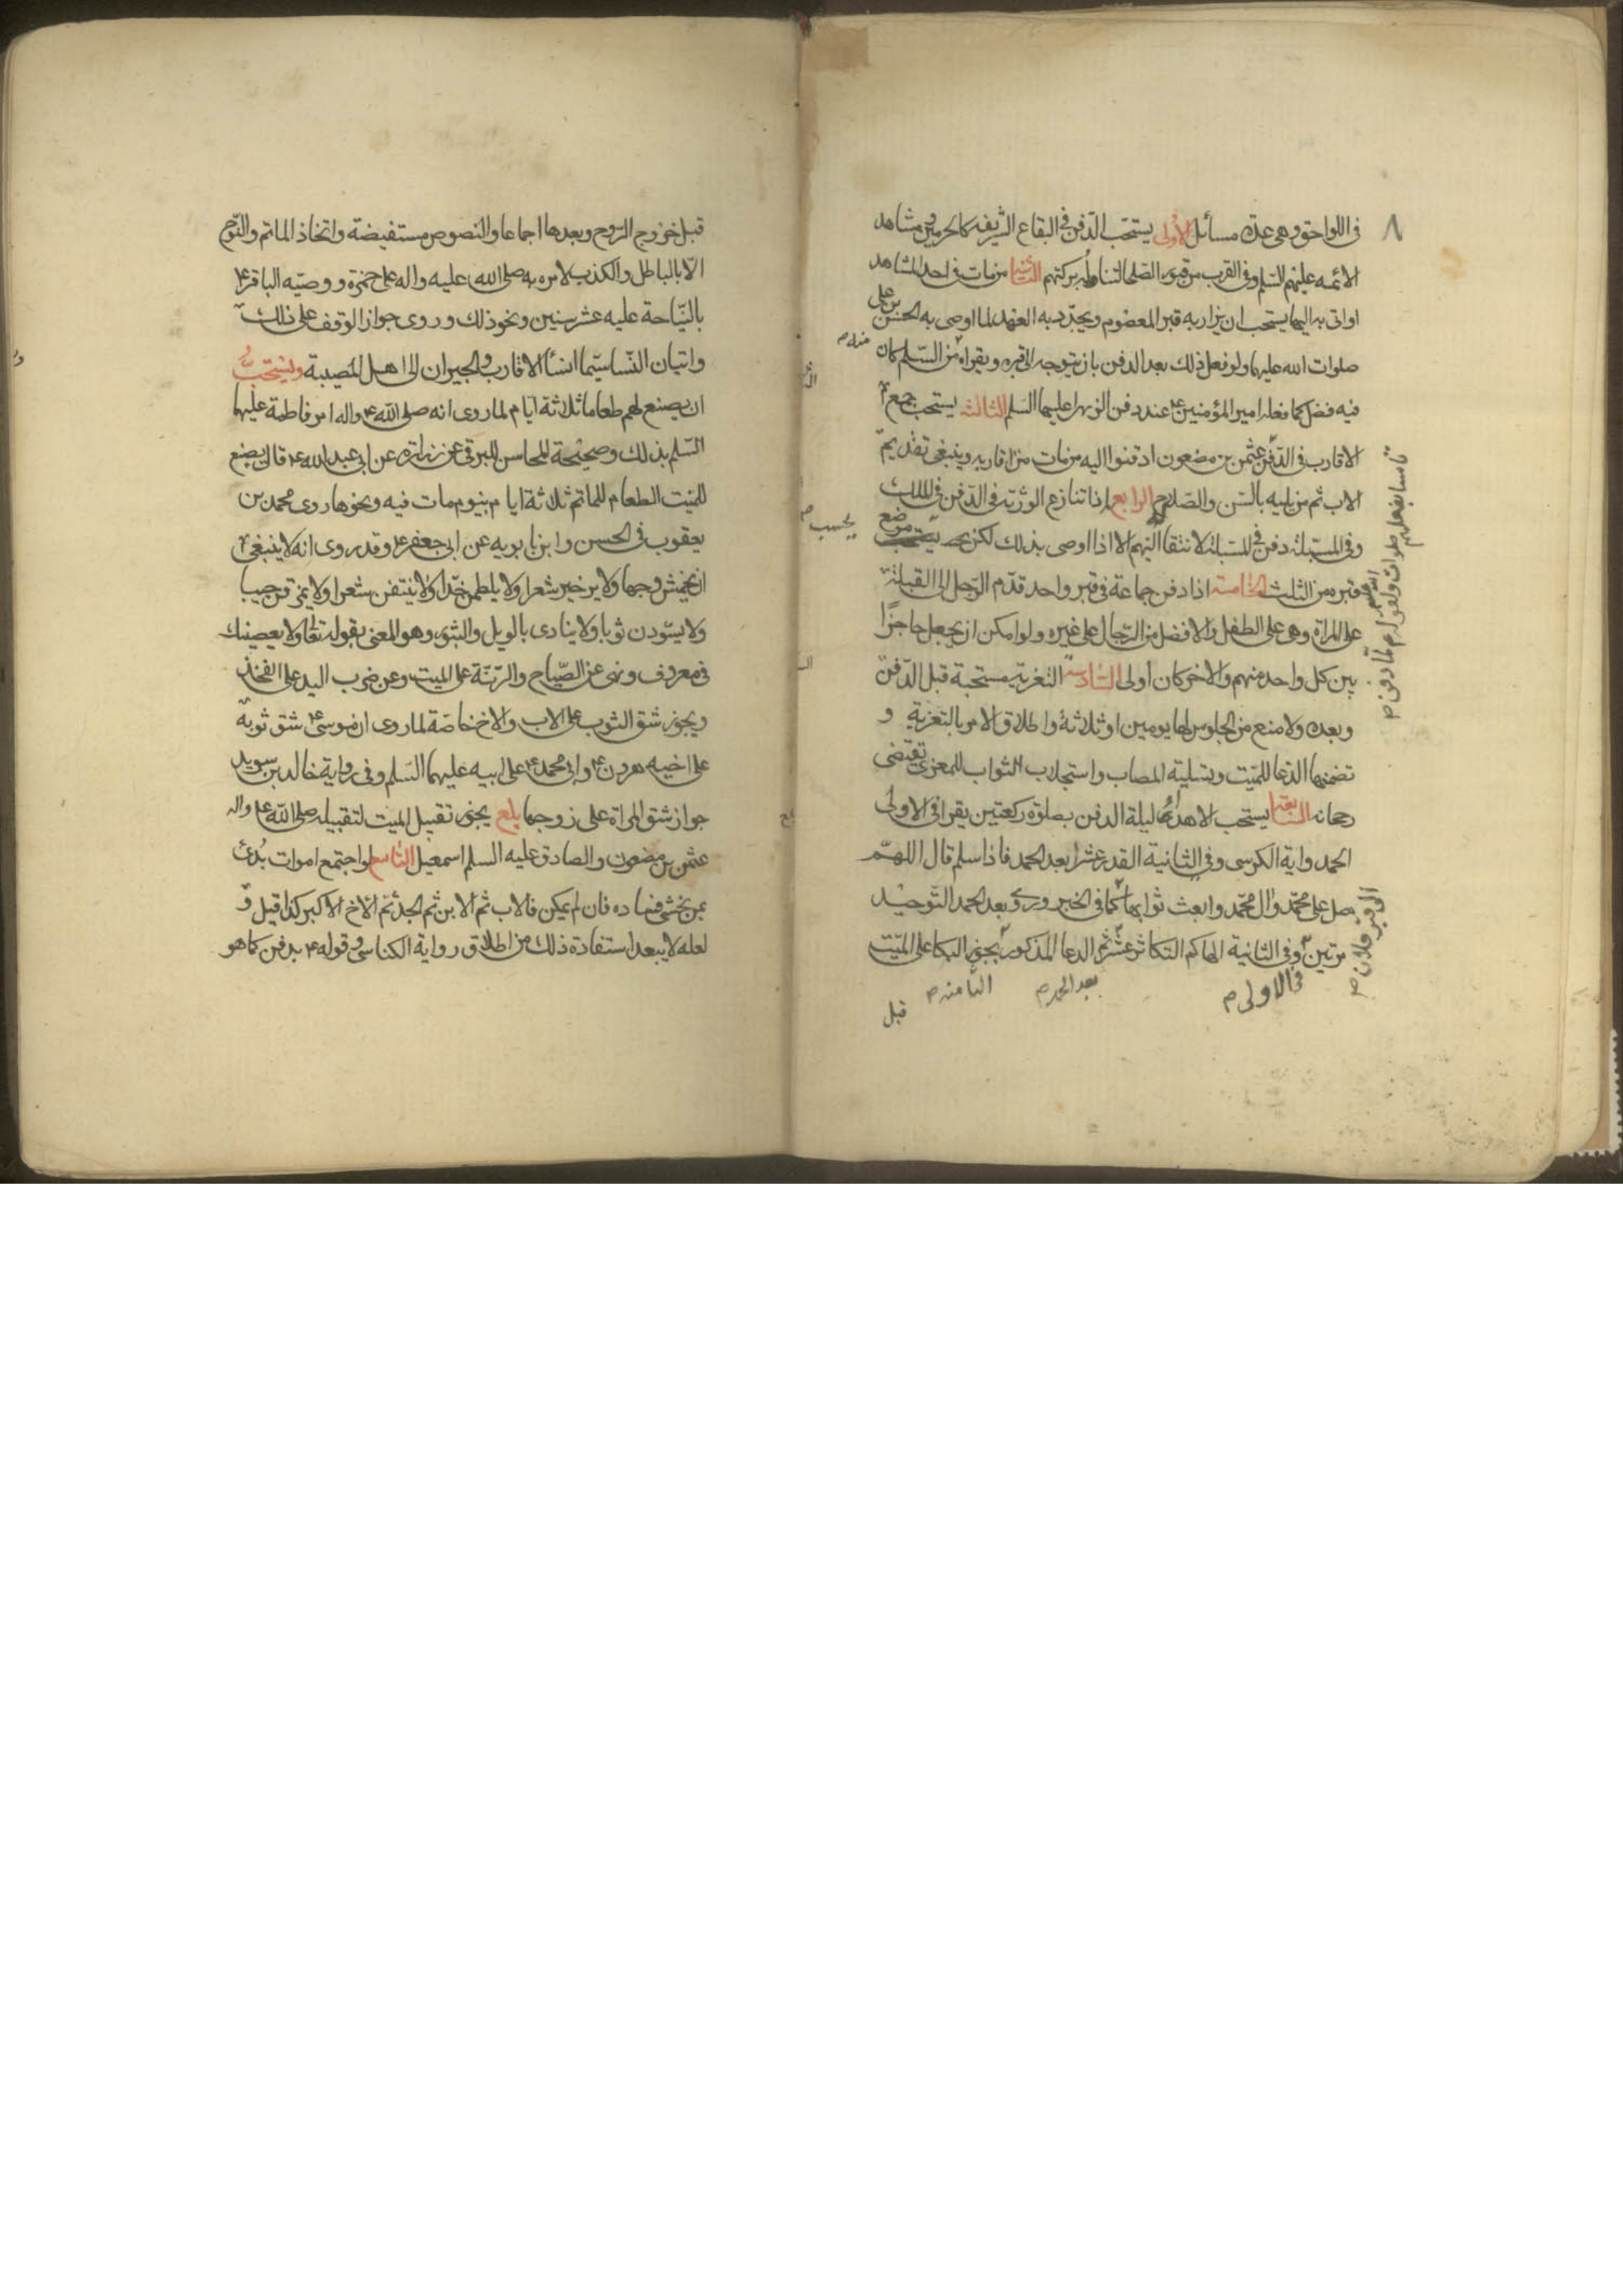 ٨
في اللواحق وهي عدة مسائل الاولى يستحب الدفن في البقاع الشريفه كالحرمين ومشاهد
الائمه عليهم السلم وفي القرب من قبور الصلحا لتناله بركتهم الثانية من مات في احد المشاهد
او اتى به اليها يستحب ان يزار به قبر المعصوم ويجدد به العهد لما اوصى به الحسن بن علي
صلوات الله عليهما ولو فعل ذلك بعد الدفن بان يتوجه الى قبره ويقراه منه السلم كان
فيه فضل كما فعله امير المؤمنين ع عند دفن الزهرا عليها السلم الثالثة يستحب جمع
الاقارب في الدفن عثمن بن مضعون ادفنوا اليه من مات من اقاربه وينبغي تقديم
الاب ثم من يليه بالسن والصلاح الرابع اذا تنازع الورثه في الدفن في الملك
وفي المسبلة دفن في المسبلة لانتقالها اليهم الا اذا اوصى بذلك لكن يحسب موضع
قبره من الثلث الخامسة اذا دفن جماعة في قبر واحد قدم الرجل الى القبلة
على المراة وهي على الطفل والافضل من الرجال على غيره ولو امكن ان يجعل حاجزا
بين كل واحد منهم والاخر كان اولى السادسة التعزية مستحبة قبل الدفن
وبعده ولا منع من الجلوس لها يومين او ثلاثة واطلاق الامر بالتعزية و
تضمنها الدعا للميت وتسلية المصاب واستجلاب الثواب للمعزي تقتضي
رجحانه السابعة يستحب الاهداء له ليلة الدفن بصلوة ركعتين يقرا في الاولى
الحمد واية الكرسي وفي الثانية القدر عشرا بعد الحمد فاذا سلم قال اللهم
صل على محمد وال محمد وابعث ثوابهما كما في الخبر وروي بعد الحمد التوحيد
مرتين وفي الثانية الهاكم التكاثر عشرا ثم الدعا المذكور يجوز البكا على الميت
في الاولى م بعد الحمد م الثامنه م
قبل
تاسيا بفعلهم صلوات الله عليهم ولقوله ع لما دفن م
الى قبر فلان م
يحسب م
قبل خروج الروح وبعدها اجماعا والنصوص مستفيضة واتخاذ الماتم والنوح
الا بالباطل والكذب لامره به صلى الله عليه واله على حمزة ووصيه الباقر ع
بالنياحة عليه عشر سنين ونحو ذلك وروى جواز الوقف على ذلك
واتيان النسا سيما انسا الاقارب والجيران الى اهل المصيبة ويستحب
ان يصنع لهم طعاما ثلاثة ايام لما روى انه صلى الله ع واله امر فاطمة عليها
السلم بذلك وصحيحة المحاسن للبرقي عن زرارة عن ابي عبد الله ع قال يصنع
للميت الطعام للماتم ثلاثة ايام بيوم مات فيه ونحوها روى محمد بن
يعقوب في الحسن وابن بابويه عن ابي جعفر ع وقد روى انه لا ينبغي
ان يخمش وجها ولا يرخين شعرا ولا يلطمن خدا ولا ينتفن شعرا ولا يمزقن جيبا
ولا يسودن ثوبا ولا ينادى بالويل والثبور وهو المعني بقوله تعالى ولا يعصينك
في معروف ونهى عن الصياح والرنة على الميت وعن ضرب اليد على الفخذ
ويجوز شق الثوب على الاب والاخ خاصة لما روى ان موسى ع شق ثوبه
على اخيه هرون ع وابي محمد ع على ابيه عليهما السلم وفي رواية خالد بن سويد
جواز شق المراة على زوجها بلغ يجوز تقبيل الميت لتقبيله صلى الله ع واله
عثمن بن مضعون والصادق عليه السلم اسمعيل التاسع لو اجتمع اموات بدئ
بمن يخشى فساده فان لم يكن فالاب ثم الابن ثم الجد ثم الاخ الاكبر كذا قيل و
لعله لا يبعد استفادة ذلك من اطلاق رواية الكناسي وقوله ع يدفن كما هو